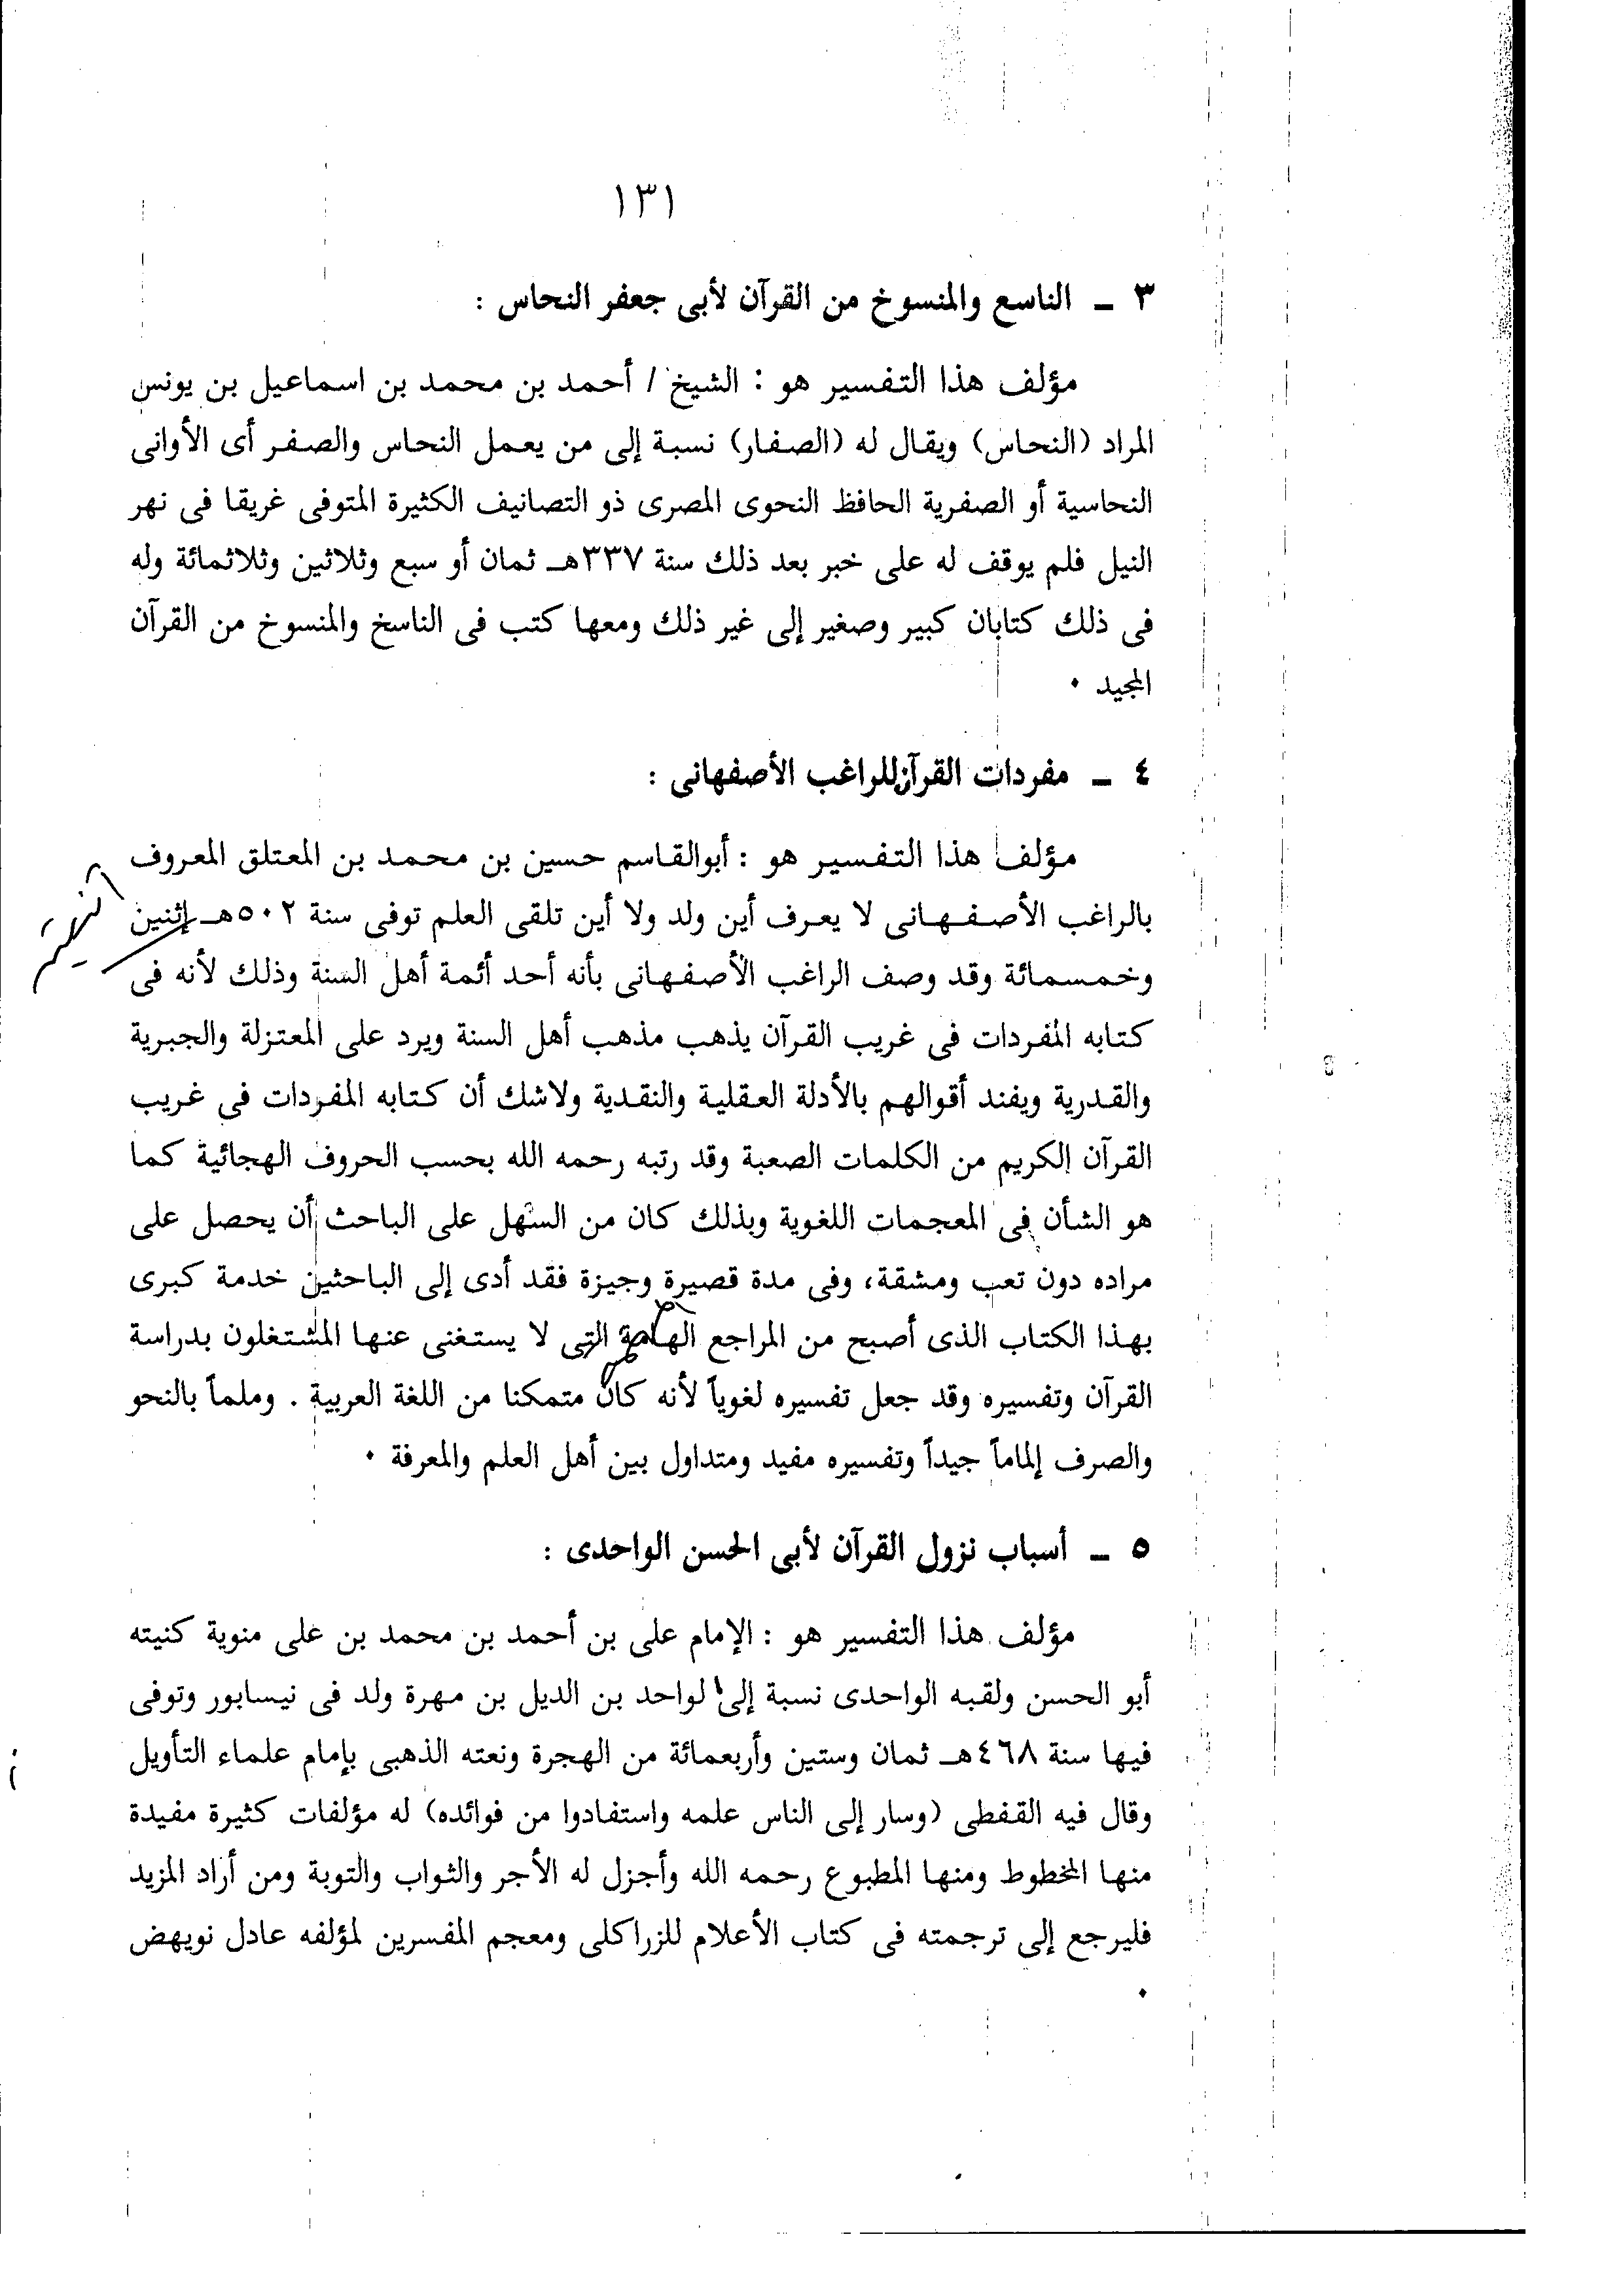 ١٣١
٣ ـ الناسع والمنسوخ من القرآن لأبى جعفر النحاس :
مؤلف هذا التفسير هو : الشيخ / أحمد بن محمد بن اسماعيل بن يونس
المراد (النحاس) ويقال له (الصفار) نسبة إلى من يعمل النحاس والصفر أى الأوانى
النحاسية أو الصفرية الحافظ النحوى المصرى ذو التصانيف الكثيرة المتوفى غريقا فى نهر
النيل فلم يوقف له على خبر بعد ذلك سنة ٣٣٧هـ ثمان أو سبع وثلاثين وثلاثمائة وله
فى ذلك كتابان كبير وصغير إلى غير ذلك ومعها كتب فى الناسخ والمنسوخ من القرآن
المجيد ٠
٤ ـ مفردات القرآن للراغب الأصفهانى :
مؤلف هذا التفسير هو : أبوالقاسم حسين بن محمد بن المعتلق المعروف
بالراغب الأصفهانى لا يعرف أين ولد ولا أين تلقى العلم توفى سنة ٥٠٢هـ إثنين
وخمسمائة وقد وصف الراغب الأصفهانى بأنه أحد أئمة أهل السنة وذلك لأنه فى
كتابه المفردات فى غريب القرآن يذهب مذهب أهل السنة ويرد على المعتزلة والجبرية
والقدرية ويفند أقوالهم بالأدلة العقلية والنقدية ولاشك أن كتابه المفردات فى غريب
القرآن الكريم من الكلمات الصعبة وقد رتبه رحمه الله بحسب الحروف الهجائية كما
هو الشأن فى المعجمات اللغوية وبذلك كان من السهل على الباحث أن يحصل على
مراده دون تعب ومشقة، وفى مدة قصيرة وجيزة فقد أدى إلى الباحثين خدمة كبرى
بهذا الكتاب الذى أصبح من المراجع الهامة التى لا يستغنى عنها المشتغلون بدراسة
القرآن وتفسيره وقد جعل تفسيره لغوياً لأنه كان متمكنا من اللغة العربية . وملماً بالنحو
والصرف إلماماً جيداً وتفسيره مفيد ومتداول بين أهل العلم والمعرفة ٠
٥ ـ أسباب نزول القرآن لأبى الحسن الواحدى :
مؤلف هذا التفسير هو : الإمام على بن أحمد بن محمد بن على منوية كنيته
أبو الحسن ولقبه الواحدى نسبة إلى لواحد بن الديل بن مهرة ولد فى نيسابور وتوفى
فيها سنة ٤٦٨هـ ثمان وستين وأربعمائة من الهجرة ونعته الذهبى بإمام علماء التأويل
وقال فيه القفطى (وسار إلى الناس علمه واستفادوا من فوائده) له مؤلفات كثيرة مفيدة
منها المخطوط ومنها المطبوع رحمه الله وأجزل له الأجر والثواب والتوبة ومن أراد المزيد
فليرجع إلى ترجمته فى كتاب الأعلام للزراكلى ومعجم المفسرين لمؤلفه عادل نويهض
٠